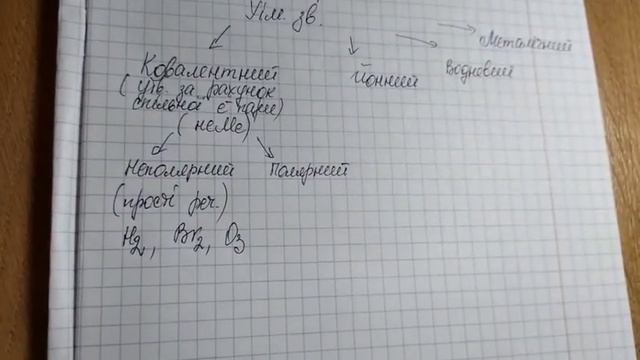 Хім. зв.
Металічний
Водневий
Йонний
Ковалентний
(утв. за рахунок
спільної ē пари)
(неМе)
Неполярний
Полярний
(прості реч.)
H2, Br2, O3